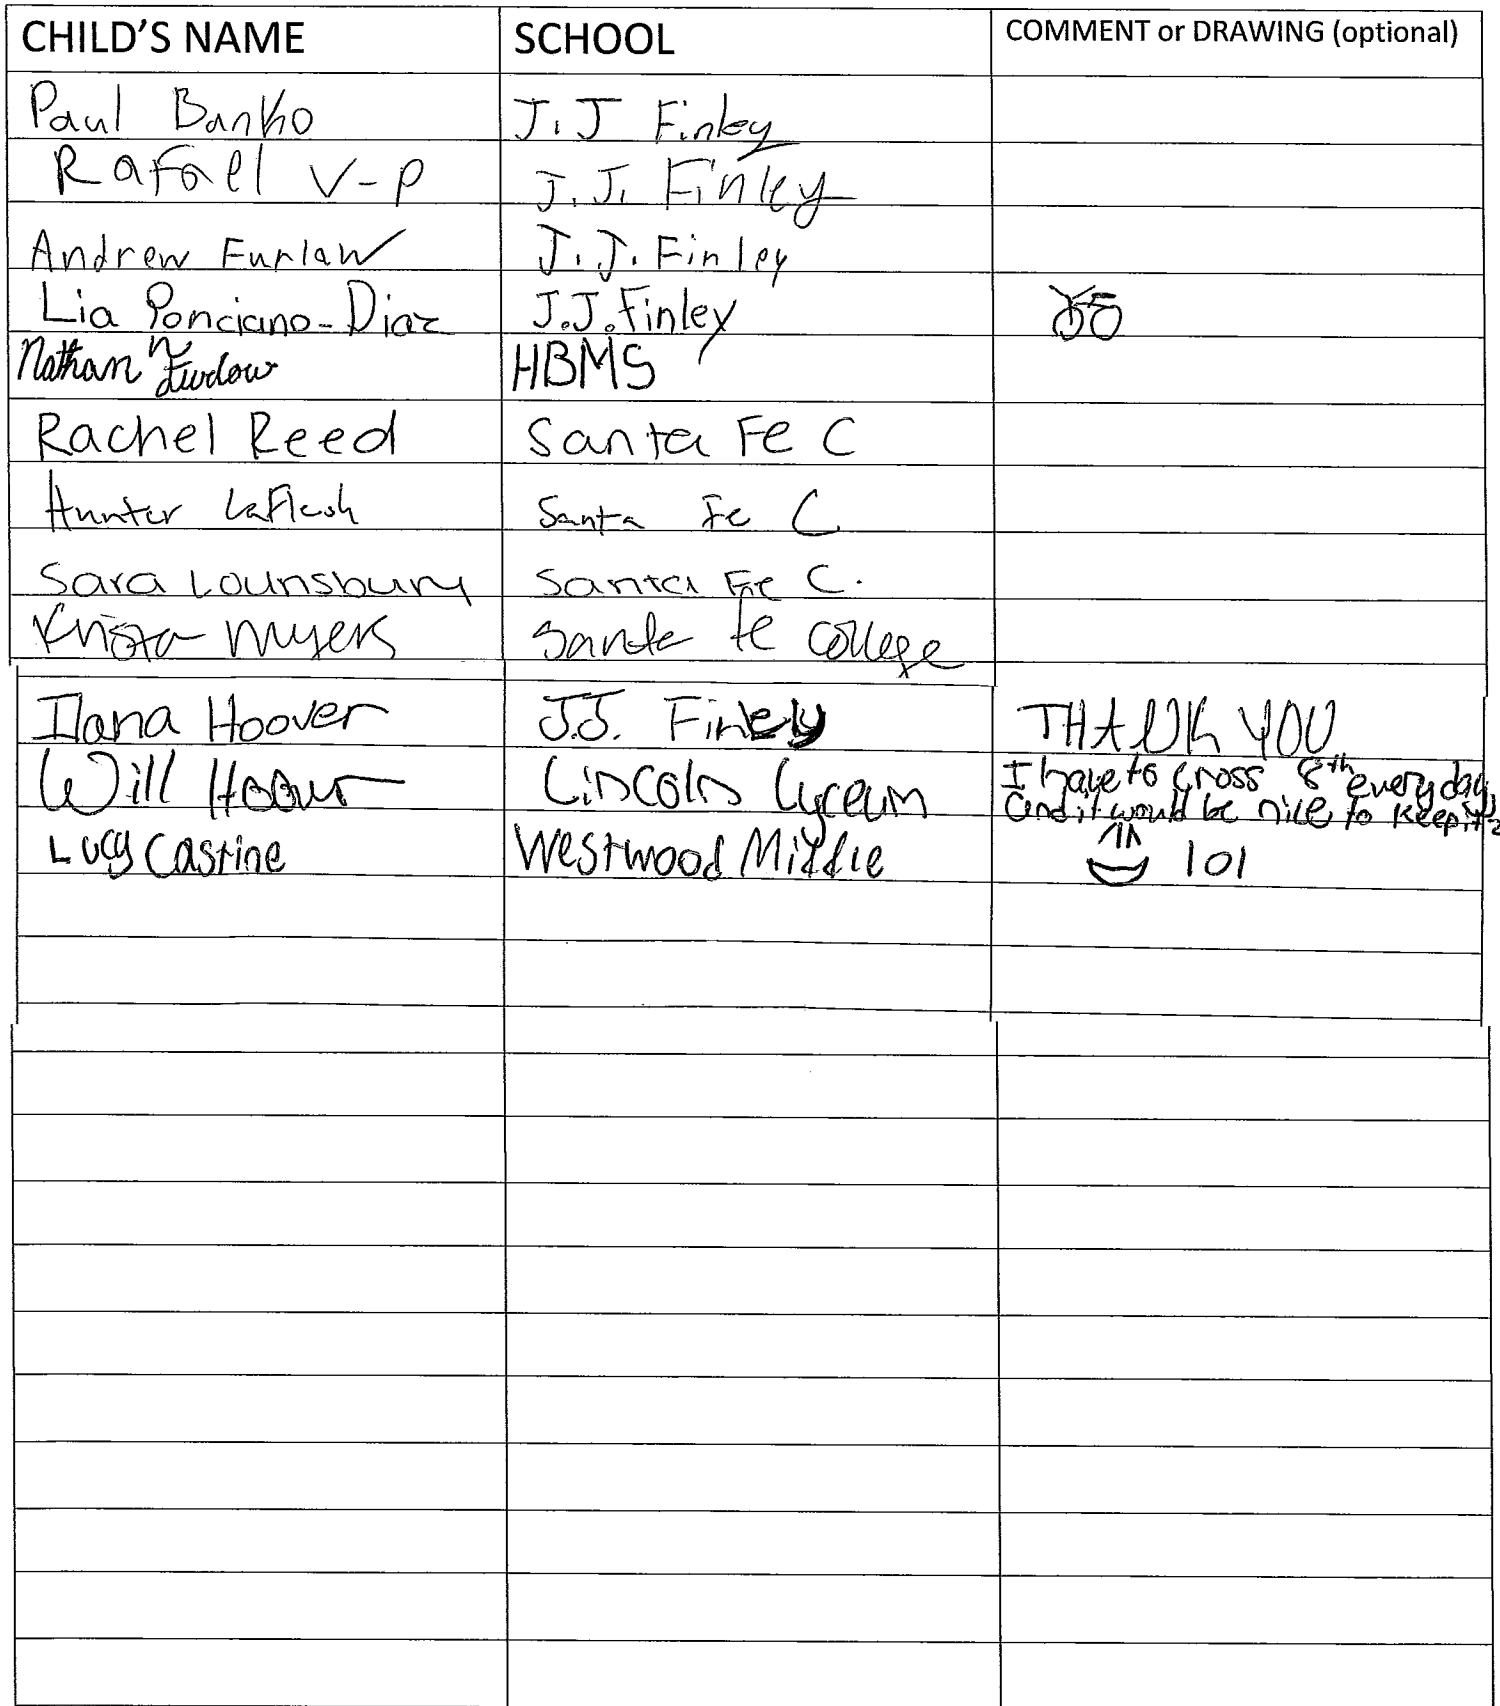 CHILD'S NAME SCHOOL COMMENT or DRAWING (optional)
Paul Banko J.J Finley
Rafael V-P J.J. Finley
Andrew Furlaw J.J. Finley
Lia Ponciano-Diaz J.J. Finley
Nathan Furlow HBMS
Rachel Reed Santa Fe C
Hunter LaFlesh Santa Fe C
Sara Lounsbury Santa Fe C.
Krista Myers Santa fe College
Ilana Hoover J.J. Finely THANK YOU
Will Hoover Lincoln Lyceum I have to cross 8th every day
and it would be nice to keep it
Lucy Castine Westwood Middle lol